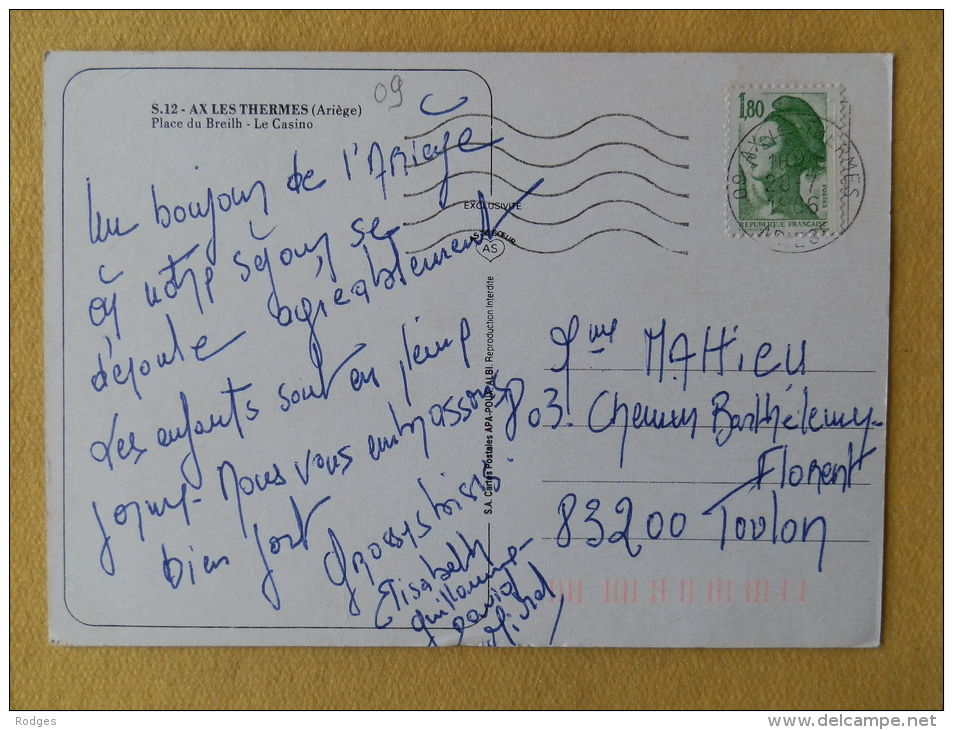 S.12 - AX LES THERMES (Ariège)
Place du Breilh - Le Casino
09
Un boujour de l'Ariège
où notre séjour se
déroule agréablement
Les enfants sont en pleine
forme - Nous vous embrassons
bien fort
Grossys bisis
Elisabeth
Guillaume -
David
Michel
EXCLUSIVITE
AS DE CŒUR
AS
S.A. Cartes Postales APA-POUX ALBI. Reproduction interdite
1,80
POSTES
REPUBLIQUE FRANÇAISE
09 AX LES THERMES
1986
ARIEGE
Mme MAthieu
803. Chemin Barthélemy-
Florent
83200 Toulon
Rodges
delcampe.net